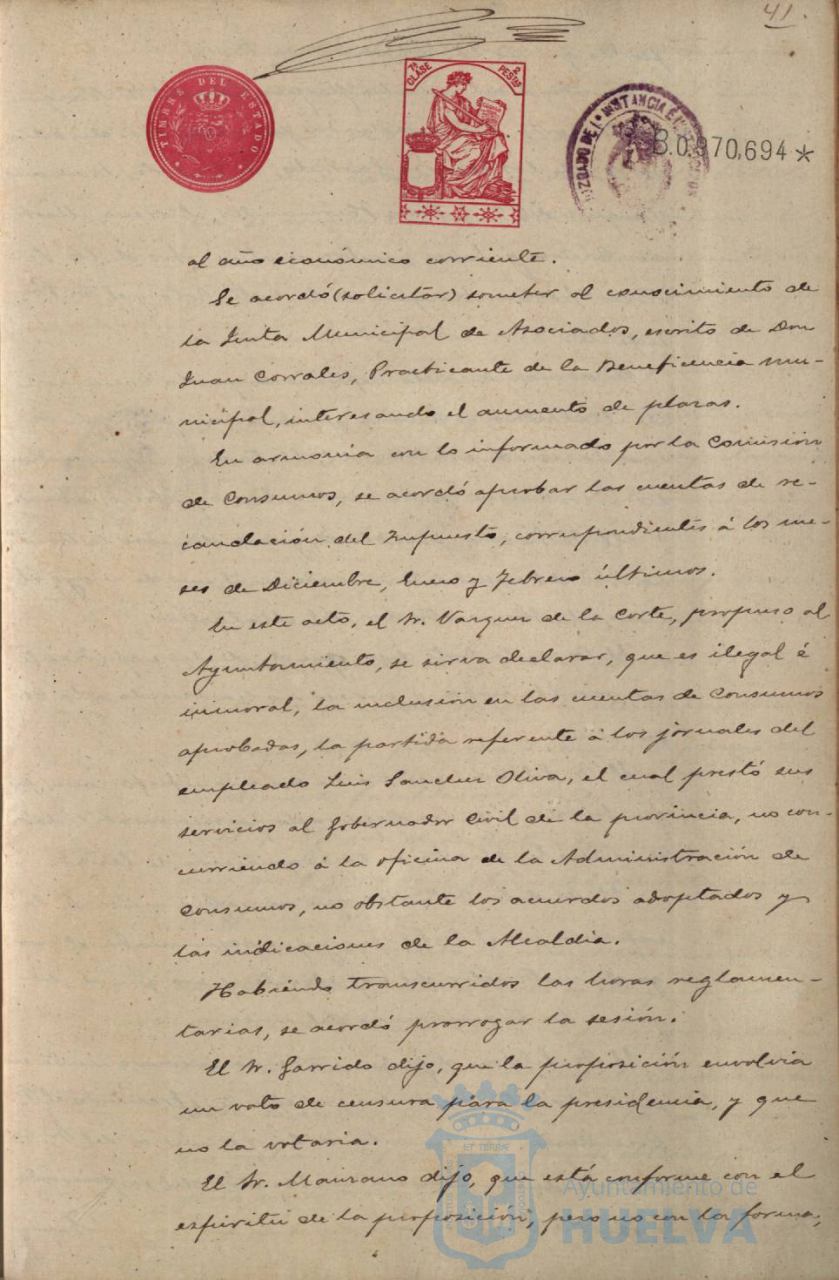 41.
TIMBRE DEL ESTADO
7ª CLASE
2 PESETAS
JUZGADO DE 1ª INSTANCIA É INSTRUCCION
B.0.970,694*
al año económico corriente.
Se acordó (solicitar) someter al conocimiento de
la Junta Municipal de Asociados, escrito de Don
Juan Corrales, Practicante de la Beneficencia mu-
nicipal, interesando el aumento de plazas.
En armonia con lo informado por la Comisión
de Consumos, se acordó aprobar las cuentas de re-
caudación del Impuesto, correspondientes á los me-
ses de Diciembre, Enero y Febrero últimos.
En este acto, el Sr. Vazquez de la Corte, propuso al
Ayuntamiento, se sirva declarar, que es ilegal é
inmoral, la inclusión en las cuentas de Consumos
aprobadas, la partida referente á los jornales del
empleado Luis Sanchez Oliva, el cual prestó sus
servicios al Gobernador Civil de la provincia, no con-
curriendo á la oficina de la Administración de
Consumos, no obstante los acuerdos adoptados y
las indicaciones de la Alcaldia.
Habiendo transcurridos las horas reglamen-
tarias, se acordó prorrogar la sesión.
El Sr. Garrido dijo, que la proposición envolvia
un voto de censura para la presidencia, y que
no la votaria.
El Sr. Manzano dijo, que está conforme con el
espiritu de la proposición, pero no con la forma,
Ayuntamiento de
HUELVA